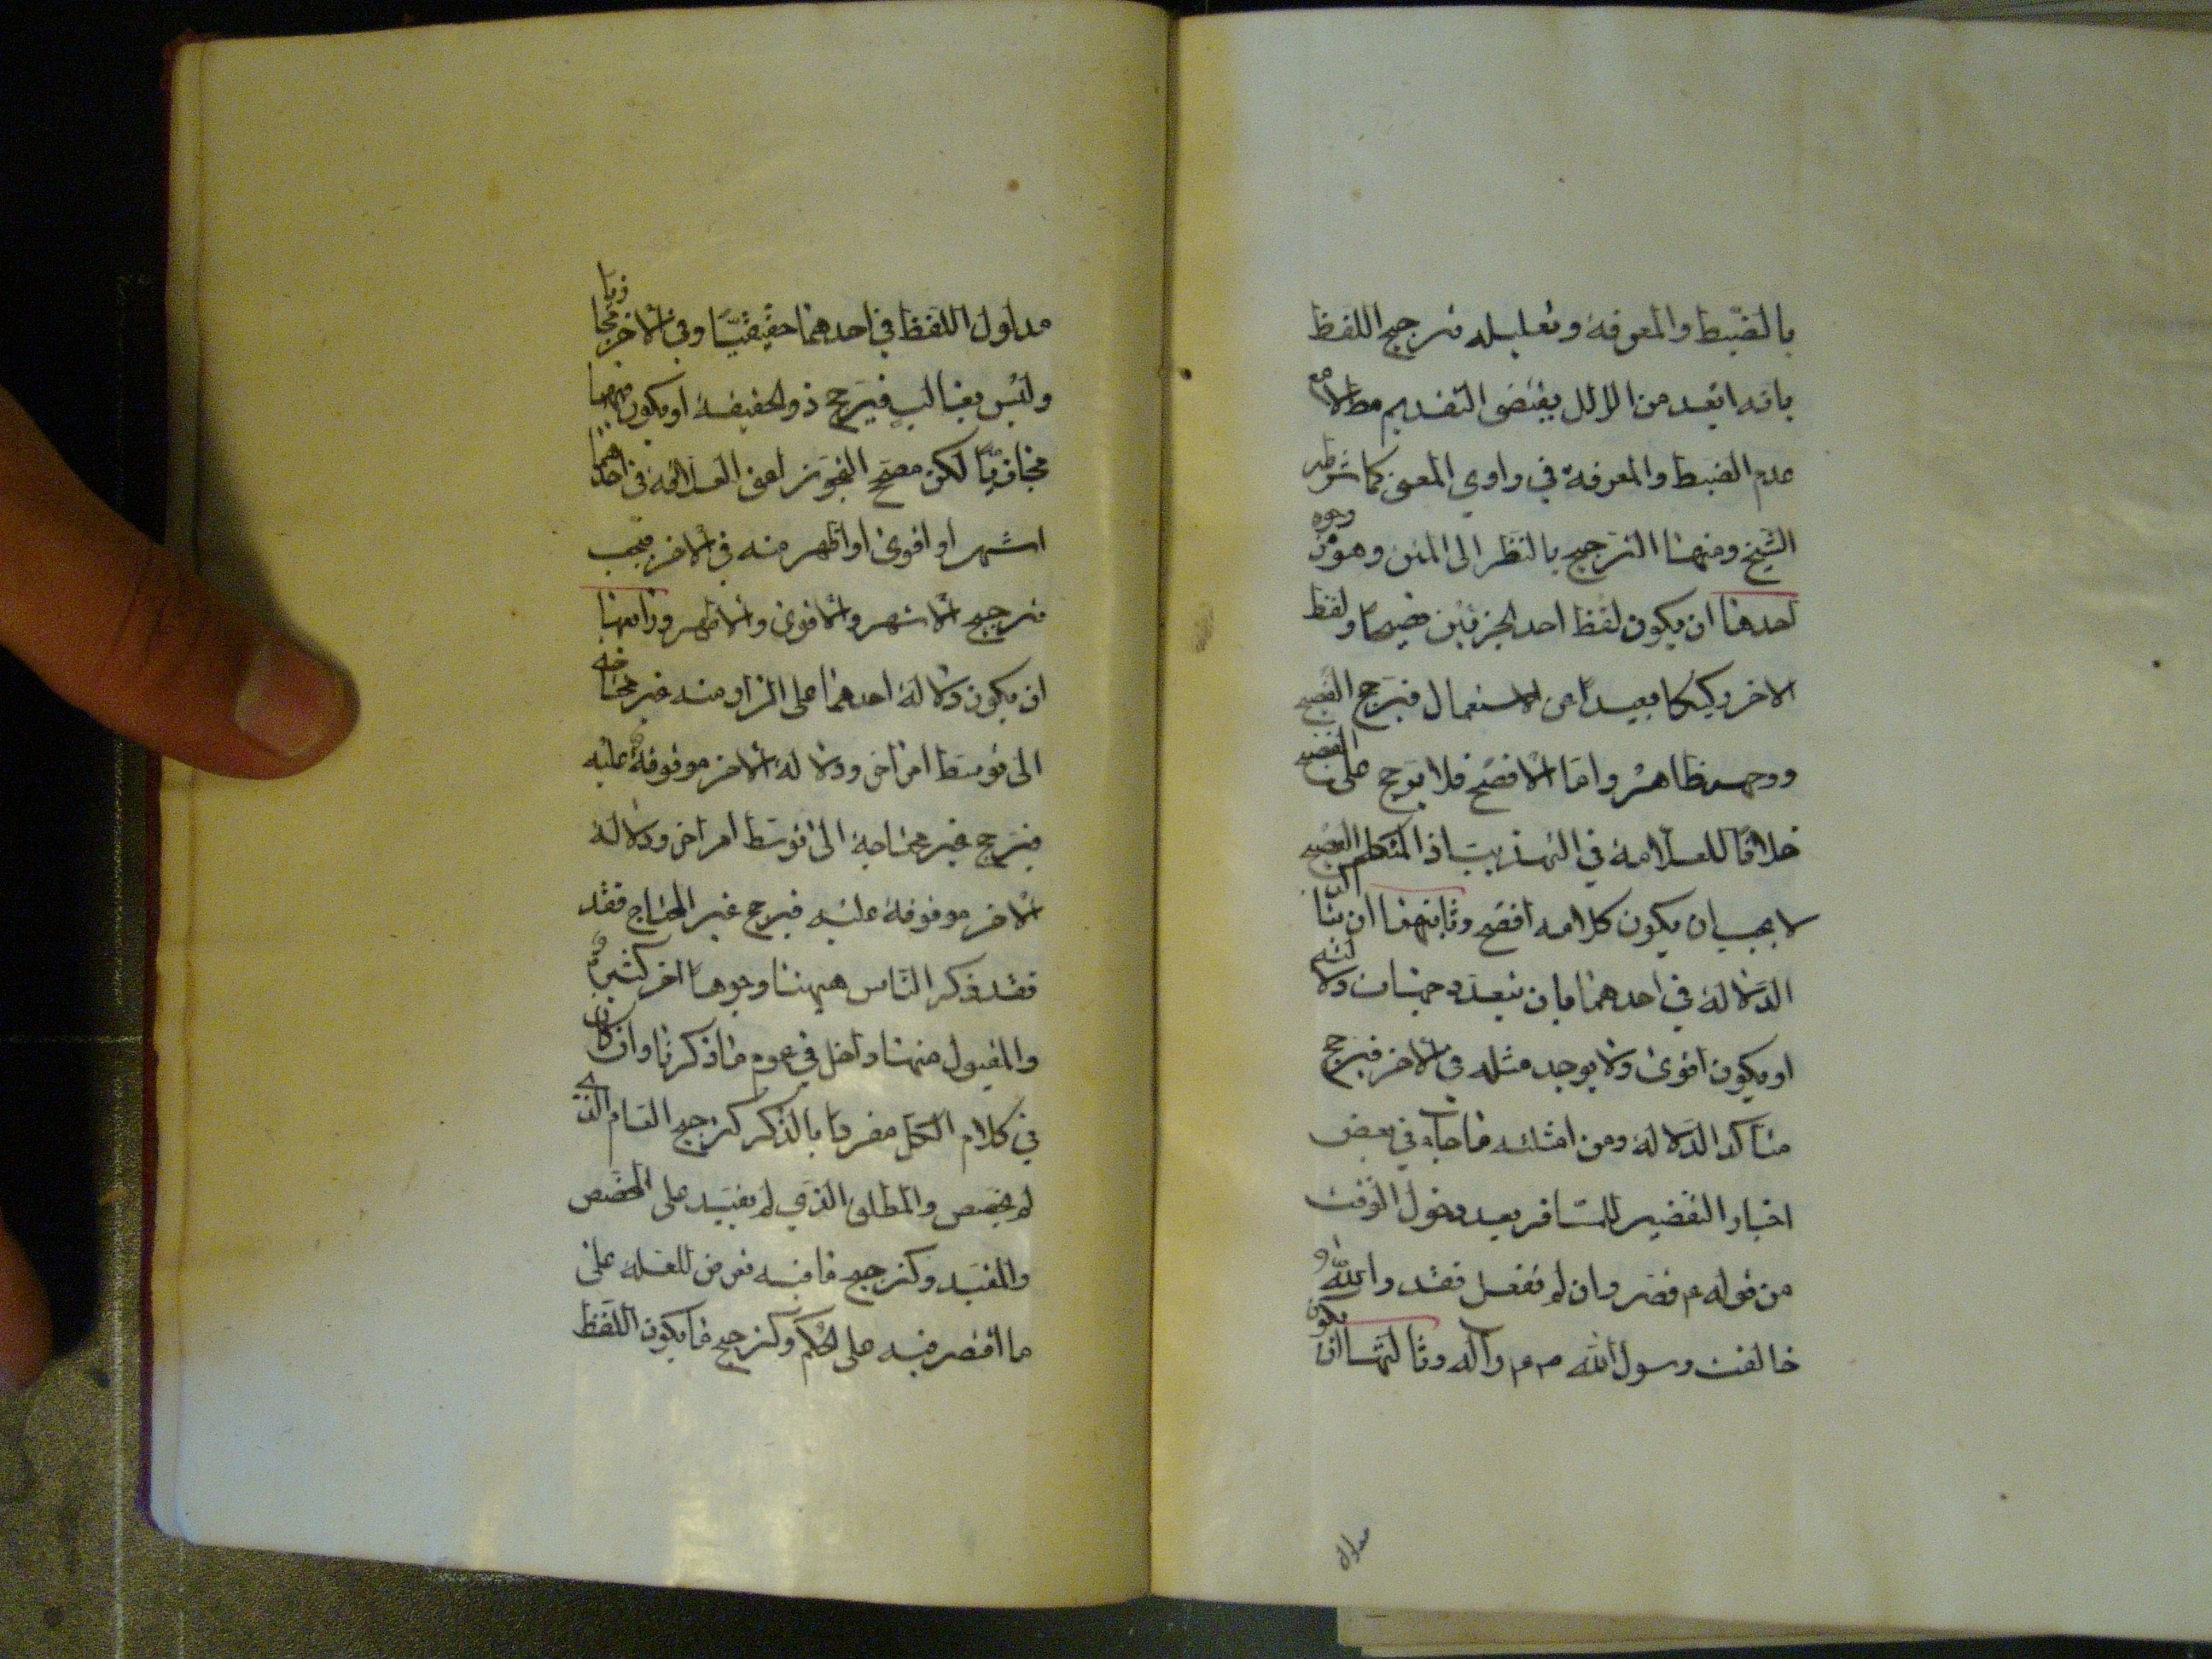 بالضبط والمعرفة وتعليله ترجيح اللفظ
بانه ابعد من الزلل يقتضى التقديم مطلقا مع
عدم الضبط والمعرفة في راوي المعنى كما شرطه
الشيخ ومنها الترجيح بالنظر الى المتن وهو من وجوه
احدها ان يكون لفظ احد الخبرين فصيحا ولفظ
الاخر ركيكا بعيدا عن الاستعمال فيرجح الفصيح
ووجهه ظاهر واما الافصح فلا يرجح على الفصيح
خلافا للعلامة في التهذيب اذ المتكلم الفصيح
لا يجب ان يكون كلامه افصح وثانيها ان يتاكد
الدلالة في احدهما بان يتعدد جهات دلالته
او يكون اقوى ولا يوجد مثله في الاخر فيرجح
متاكد الدلالة ومن امثلته ما جاء في بعض
اخبار التقصير للمسافر بعد دخول الوقت
من قوله ع قصر وان لم تفعل فقد والله و
خالفت رسول الله ص م وآله وثالثها ان يكون
مدلول
مدلول اللفظ في احدهما حقيقيا وفي الاخر مجازيا
وليس بغالب فيرجح ذو الحقيقة او يكون فيهما
مجازيا لكن مصحح التجوز اعنى العلاقة في احدهما
اشهر او اقوى او اظهر منه في الاخر فيجب
ترجيح الاشهر والاقوى والاظهر ورابعها
ان يكون دلالة احدهما على المراد منه غير محتاجة
الى توسط امر اخر ودلالة الاخر موقوفة عليه
فيرجح غير محتاجة الى توسط امر اخر ودلالة
الاخر موقوفة عليه فيرجح غير المحتاج فقد
فقد ذكر الناس ههنا وجوها اخر كثيرة و
والمقبول منها داخل في عموم ما ذكرنا وان كان
في كلام الكل مفردا بالذكر كترجيح العام الذي
لم يخصص والمطلق الذي لم يقيد على المخصص
والمقيد وكترجيح ما فيه تعرض للعلة على
ما اقتصر فيه على الحكم وكترجيح ما يكون اللفظ